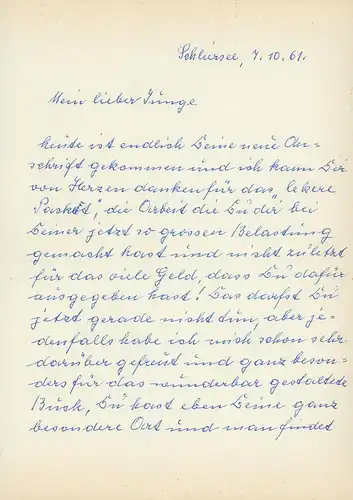 Schliersee, 7.10.61.
Mein lieber Junge
heute ist endlich Deine neue An-
schrift gekommen und ich kann Dir
von Herzen danken für das „lekere
Paskett", die Arbeit die Du dir bei
Deiner jetzt so grossen Belastung
gemacht hast und nicht zuletzt
für das viele Geld, dass Du dafür
ausgegeben hast! Das darfst Du
jetzt gerade nicht tun, aber je-
denfalls habe ich mich schon sehr
darüber gefreut und ganz beson-
ders für das wunderbar gestaltete
Buch, Du hast eben Deine ganz
besondere Art und man findet